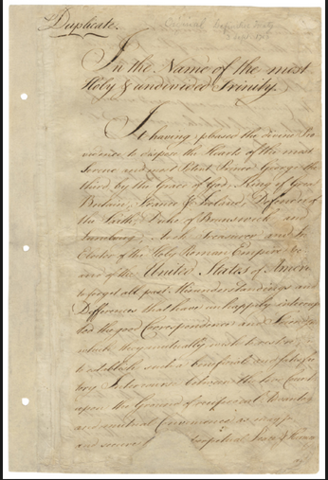 Duplicate.
Original Definitive Treaty
Sept. 1783
In the Name of the most
Holy & undivided Trinity.
It having pleased the Divine Pro
vidence to dispose the Hearts of the most
Serene and most Potent Prince George the
third, by the Grace of God, King of Great
Britain, France & Ireland, Defender of
the Faith, Duke of Brunswick and
Lunebourg, Arch Treasurer and Prince
Elector of the Holy Roman Empire &c.
and of the United States of America
to forget all past Misunderstandings and
Differences that have unhappily interrup
ted the good Correspondence and Friendship
which they mutually wish to restore;
to establish such a beneficial and satisfac
tory Intercourse between the two Countries
upon the Ground of reciprocal Advantages
and mutual Convenience as may
and secure perpetual Peace & Harmony